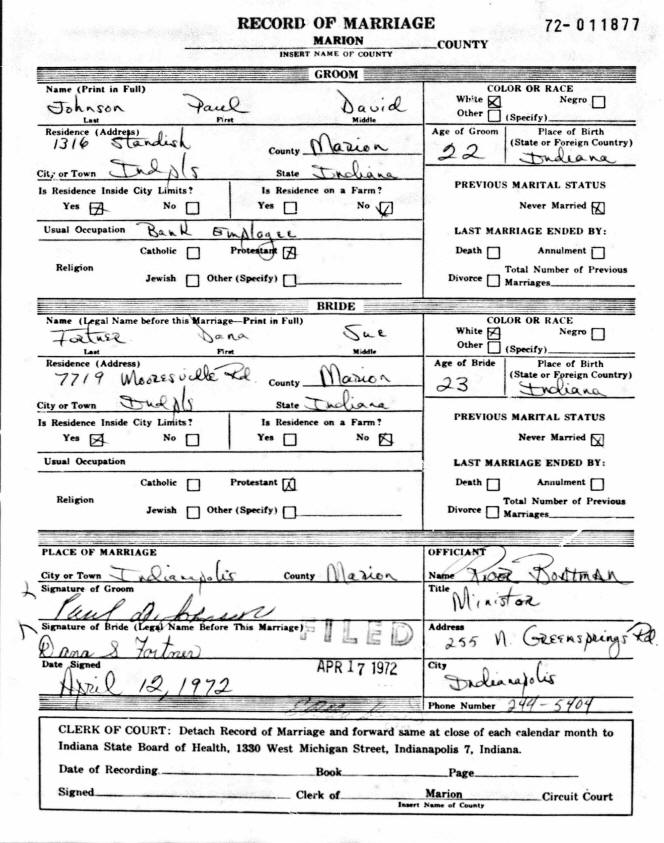 RECORD OF MARRIAGE 72-011877
MARION COUNTY
INSERT NAME OF COUNTY
GROOM
Name (Print in Full)
Johnson Paul David
Last First Middle
COLOR OR RACE
White ☒ Negro ☐
Other ☐ (Specify)
Residence (Address)
1316 Standish County Marion
Age of Groom
22
Place of Birth
(State or Foreign Country)
Indiana
City or Town Indpls State Indiana
Is Residence Inside City Limits? Is Residence on a Farm?
Yes ☒ No ☐ Yes ☐ No ☑
PREVIOUS MARITAL STATUS
Never Married ☒
Usual Occupation Bank Employee
LAST MARRIAGE ENDED BY:
Catholic ☐ Protestant ☒
Death ☐ Annulment ☐
Religion
Jewish ☐ Other (Specify) ☐
Divorce ☐ Total Number of Previous
Marriages
BRIDE
Name (Legal Name before this Marriage—Print in Full)
Fortner Dana Sue
Last First Middle
COLOR OR RACE
White ☒ Negro ☐
Other ☐ (Specify)
Residence (Address)
7719 Mooresville Rd. County Marion
Age of Bride
23
Place of Birth
(State or Foreign Country)
Indiana
City or Town Indpls State Indiana
Is Residence Inside City Limits? Is Residence on a Farm?
Yes ☒ No ☐ Yes ☐ No ☒
PREVIOUS MARITAL STATUS
Never Married ☒
Usual Occupation
LAST MARRIAGE ENDED BY:
Catholic ☐ Protestant ☒
Death ☐ Annulment ☐
Religion
Jewish ☐ Other (Specify) ☐
Divorce ☐ Total Number of Previous
Marriages
PLACE OF MARRIAGE
City or Town Indianapolis County Marion
Signature of Groom
Paul D. Johnson
Signature of Bride (Legal Name Before This Marriage)
Dana S Fortner
FILED
Date Signed
April 12, 1972
APR 17 1972
OFFICIANT
Name
Title
Minister
Address
255 N. Greensprings Rd.
City
Indianapolis
Phone Number 244-5404
CLERK OF COURT: Detach Record of Marriage and forward same at close of each calendar month to
Indiana State Board of Health, 1330 West Michigan Street, Indianapolis 7, Indiana.
Date of Recording Book Page
Signed Clerk of Marion Circuit Court
Insert Name of County